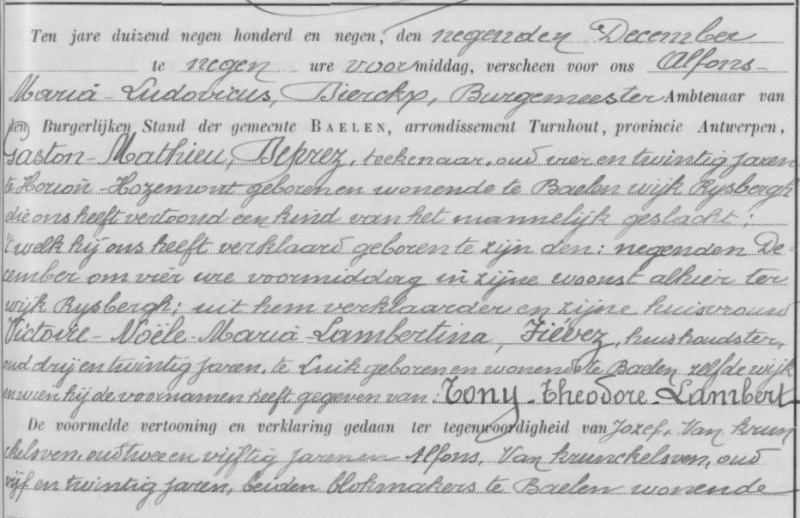 Ten jare duizend negen honderd en negen, den negenden December
te negen ure voormiddag, verscheen voor ons Alfons-
Maria-Ludovicus, Bierckx, Burgemeester Ambtenaar van
den Burgerlijken Stand der gemeente BAELEN, arrondissement Turnhout, provincie Antwerpen,
Gaston-Mathieu, Deprez, teekenaar, oud vier en twintig jaren
te Horion-Hozemont geboren en wonende te Baelen wijk Rysbergh
die ons heeft vertoond een kind van het mannelijk geslacht;
't welk hij ons heeft verklaard geboren te zijn den: negenden De-
cember om vier ure voormiddag in zijne woonst alhier ter
wijk Rysbergh; uit hem verklaarder en zijne huisvrouw
Victoire-Noële-Maria-Lambertina, Fievez, huishoudster,
oud drij en twintig jaren, te Luik geboren en wonende te Baelen zelfde wijk
en wien hij de voornamen heeft gegeven van: Tony-Theodore-Lambert
De voormelde vertooning en verklaring gedaan ter tegenwoordigheid van Jozef, Van Krun
ckelsven, oud twee en vijftig jaren en Alfons, Van Krunckelsven, oud
vijf en twintig jaren, beiden blokmakers te Baelen wonende